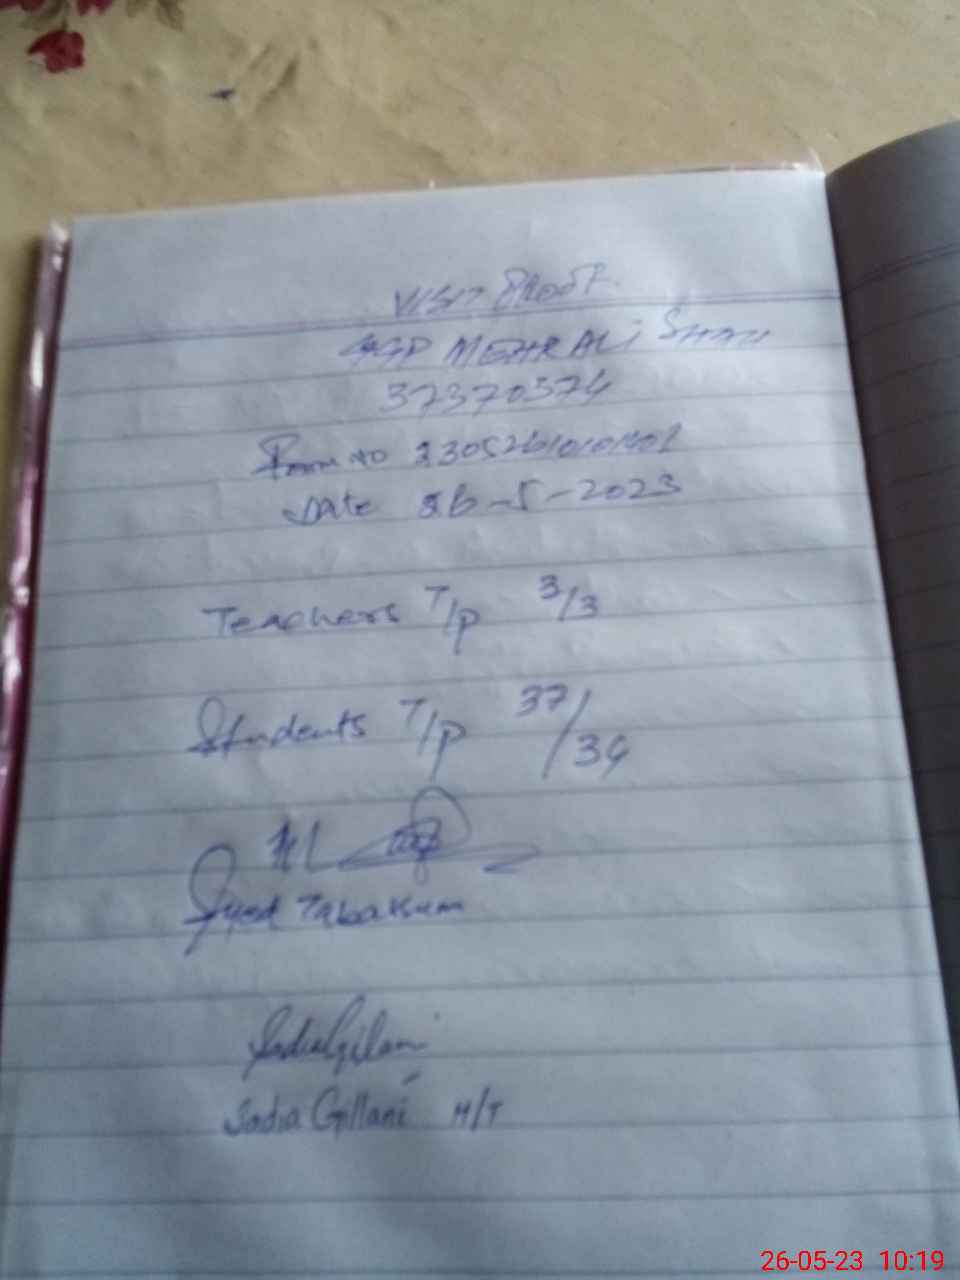 VISIT PROOF
GGP MEHR ALI SHAH
37370374
Form NO
Date 26-5-2023
Teachers T/P 3/3
Students T/P 37/34
Syed Tabasum
Sadia Gillani
Sadia Gillani H/T
26-05-23 10:19